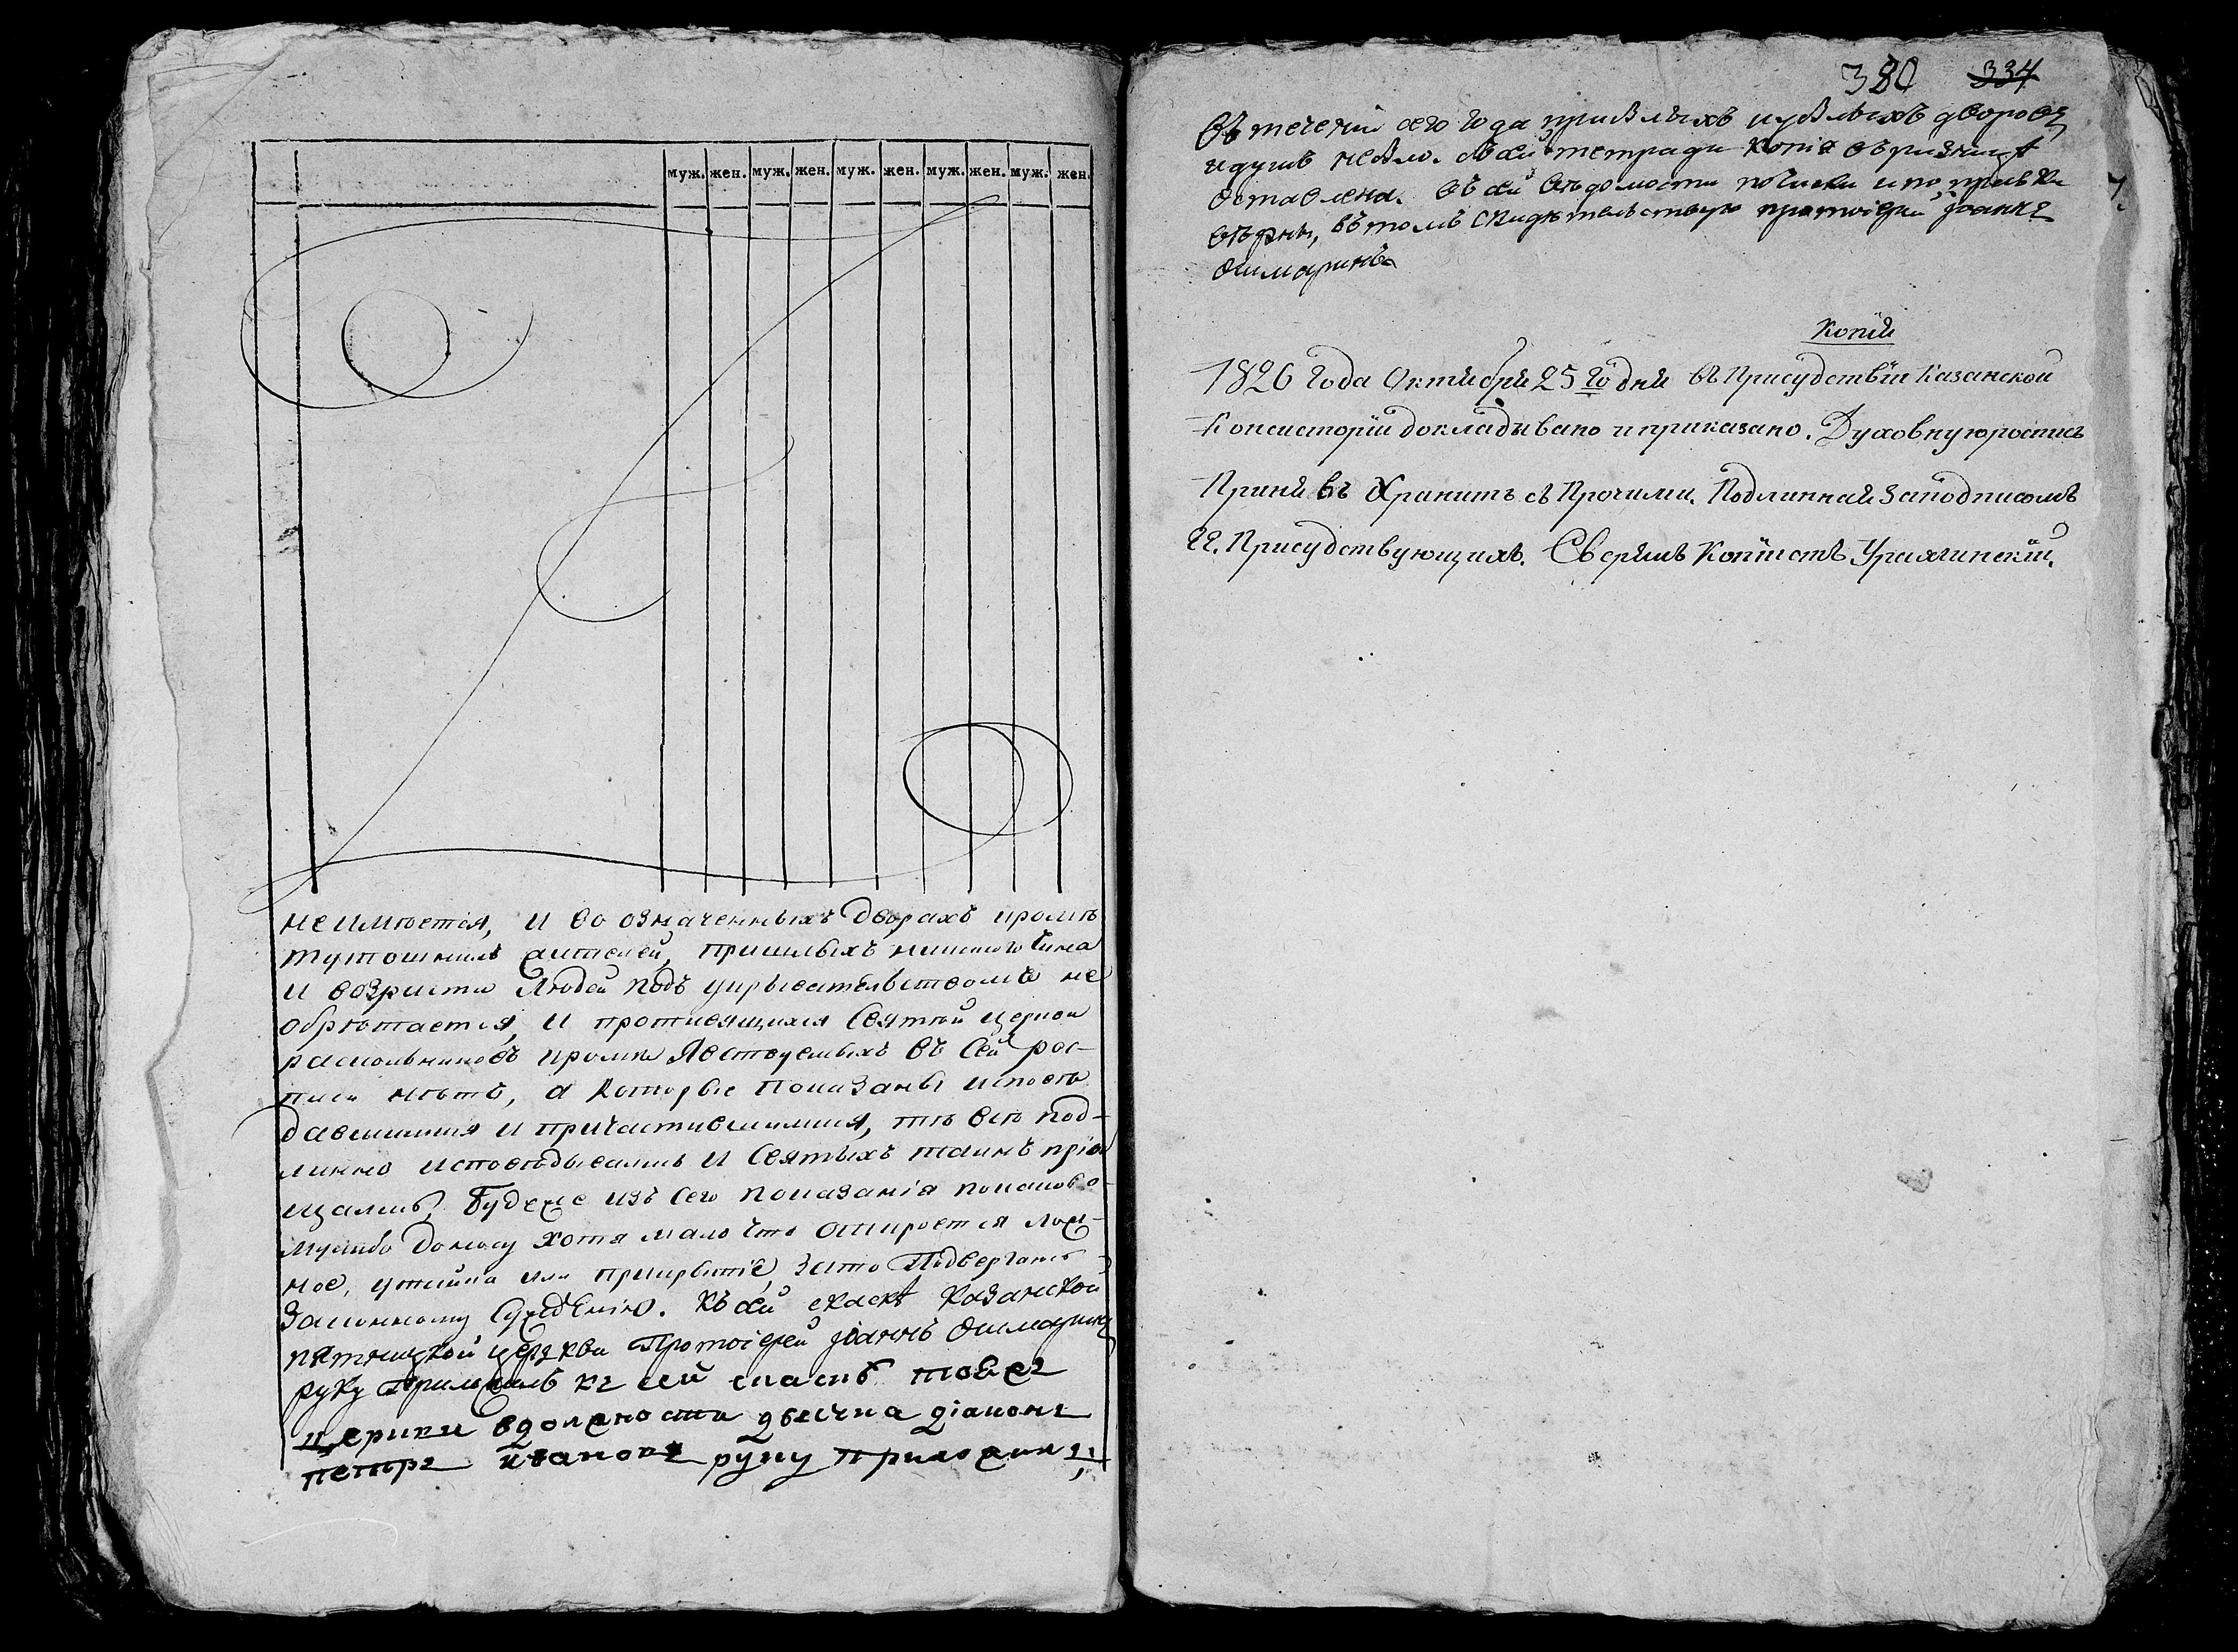 муж. жен. муж. жен. муж. жен. муж. жен. муж. жен.
неимѣется, и во означенныхъ дворахъ кромѣ
тутошныхъ жителей, пришлыхъ никакого чина
и возраста людей подъ укрывательствомъ не
обрѣтается, и противящихся Святѣй церкви
раскольниковъ кромѣ явствуемыхъ въ сей рос-
писи нѣтъ, а которые показаны исповѣ
давшимися и причастившимися, тѣ всѣ под-
линно исповѣдывались и Святыхъ таинъ прiоб
щались, Буде же изъ сего показанія покаково-
мулибо доносу хотя мало что откроется лож-
ное, утайка или прикрытіе, зато Подвергаюсь
Законному Сужденію. Къ сей скаскѣ Казанской
пятницкой церкви Протоіерей Іоаннъ
руку приложилъ къ сей скаскѣ тоежъ
церкви вдолжности дьячка діаконъ
петръ ивановъ руку приложилъ
380 334
Въ теченіи сего года прибылыхъ иубылыхъ дворовъ
идушъ небыло. Съсей тетради копія въризницѣ
оставлена. Въ сей вѣдомости почистки ипоправки
вѣрны, въ томъ свидѣтельствую протоіерей Іоаннъ
Копія
1826 года Октября 25 го дня въ Присудствіи Казанской
Консисторіи докладывано и приказано. Духовную роспись
Принявъ Хранить съ Прочими. Подлинная заподписомъ
гг. Присудствующихъ. Сверялъ Копіистъ